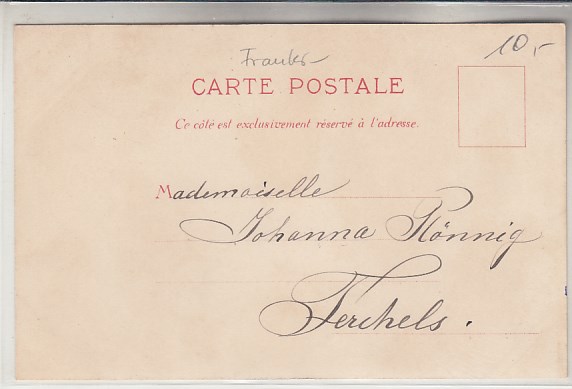 10,-
CARTE POSTALE
Ce côté est exclusivement réservé à l'adresse.
Mademoiselle
Johanna Rönnig
Ferchels.